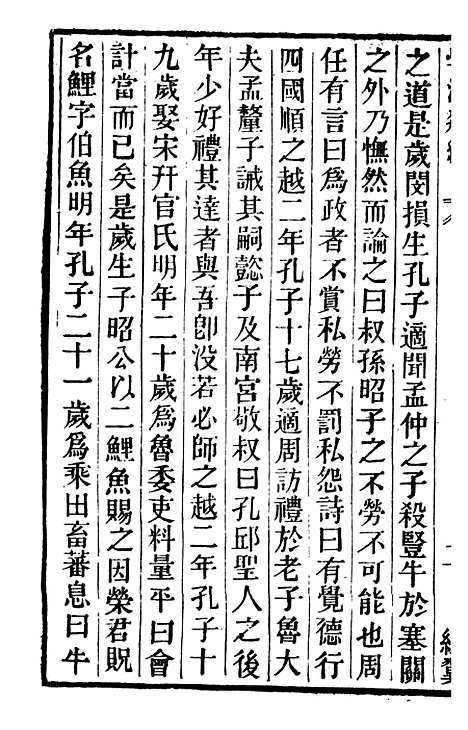 之道是歲閔損生孔子適聞孟仲之子殺豎牛於塞關
之外乃憮然而論之曰叔孫昭子之不勞不可能也周
任有言曰爲政者不賞私勞不罰私怨詩曰有覺德行
四國順之越二年孔子十七歲適周訪禮於老子魯大
夫孟釐子誡其嗣懿子及南宮敬叔曰孔邱聖人之後
年少好禮其達者與吾卽没若必師之越二年孔子十
九歲娶宋幵官氏明年二十歲爲魯委吏料量平曰會
計當而已矣是歲生子昭公以二鯉魚賜之因榮君貺
名鯉字伯魚明年孔子二十一歲爲乘田畜蕃息曰牛